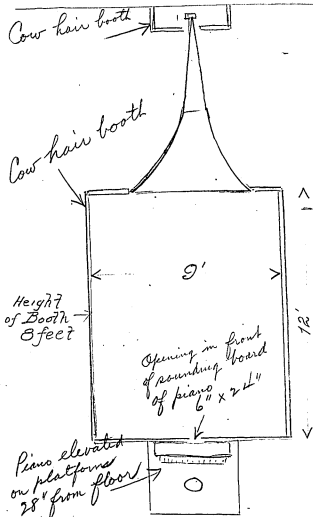 Cow hair booth
Cow hair booth
9'
12'
Height
of Booth
8 feet
Opening in front
of sounding board
of piano
6" x 24"
Piano elevated
on platforms
28" from floor